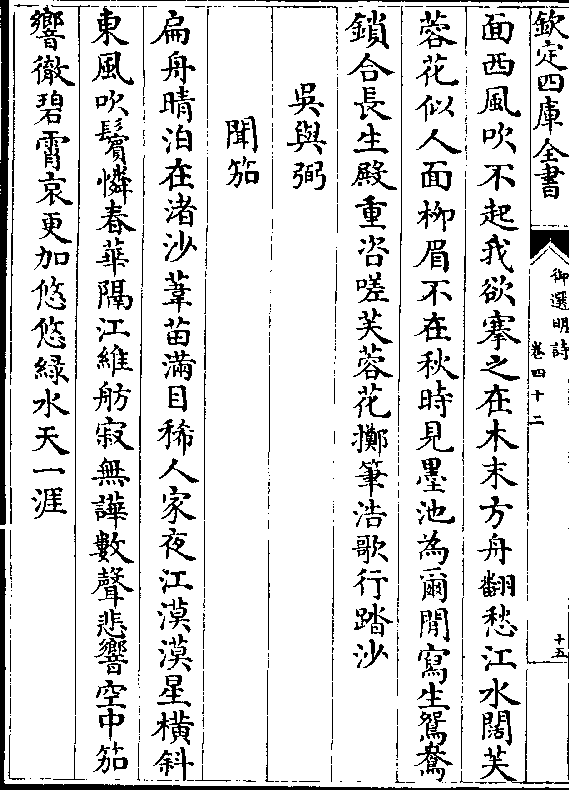 欽定四庫全書
御選明詩
卷四十二
十五
面西風吹不起我欲搴之在木末方舟翻愁江水闊芙
蓉花似人面柳眉不在秋時見墨池為爾閒寫生鴛鴦
鎖合長生殿重咨嗟芙蓉花擲筆浩歌行踏沙
吳與弼
聞笳
扁舟晴泊在渚沙葦苗滿目稀人家夜江漠漠星橫斜
東風吹鬢憐春華隔江維舫寂無譁數聲悲響空中笳
響徹碧霄哀更加悠悠綠水天一涯